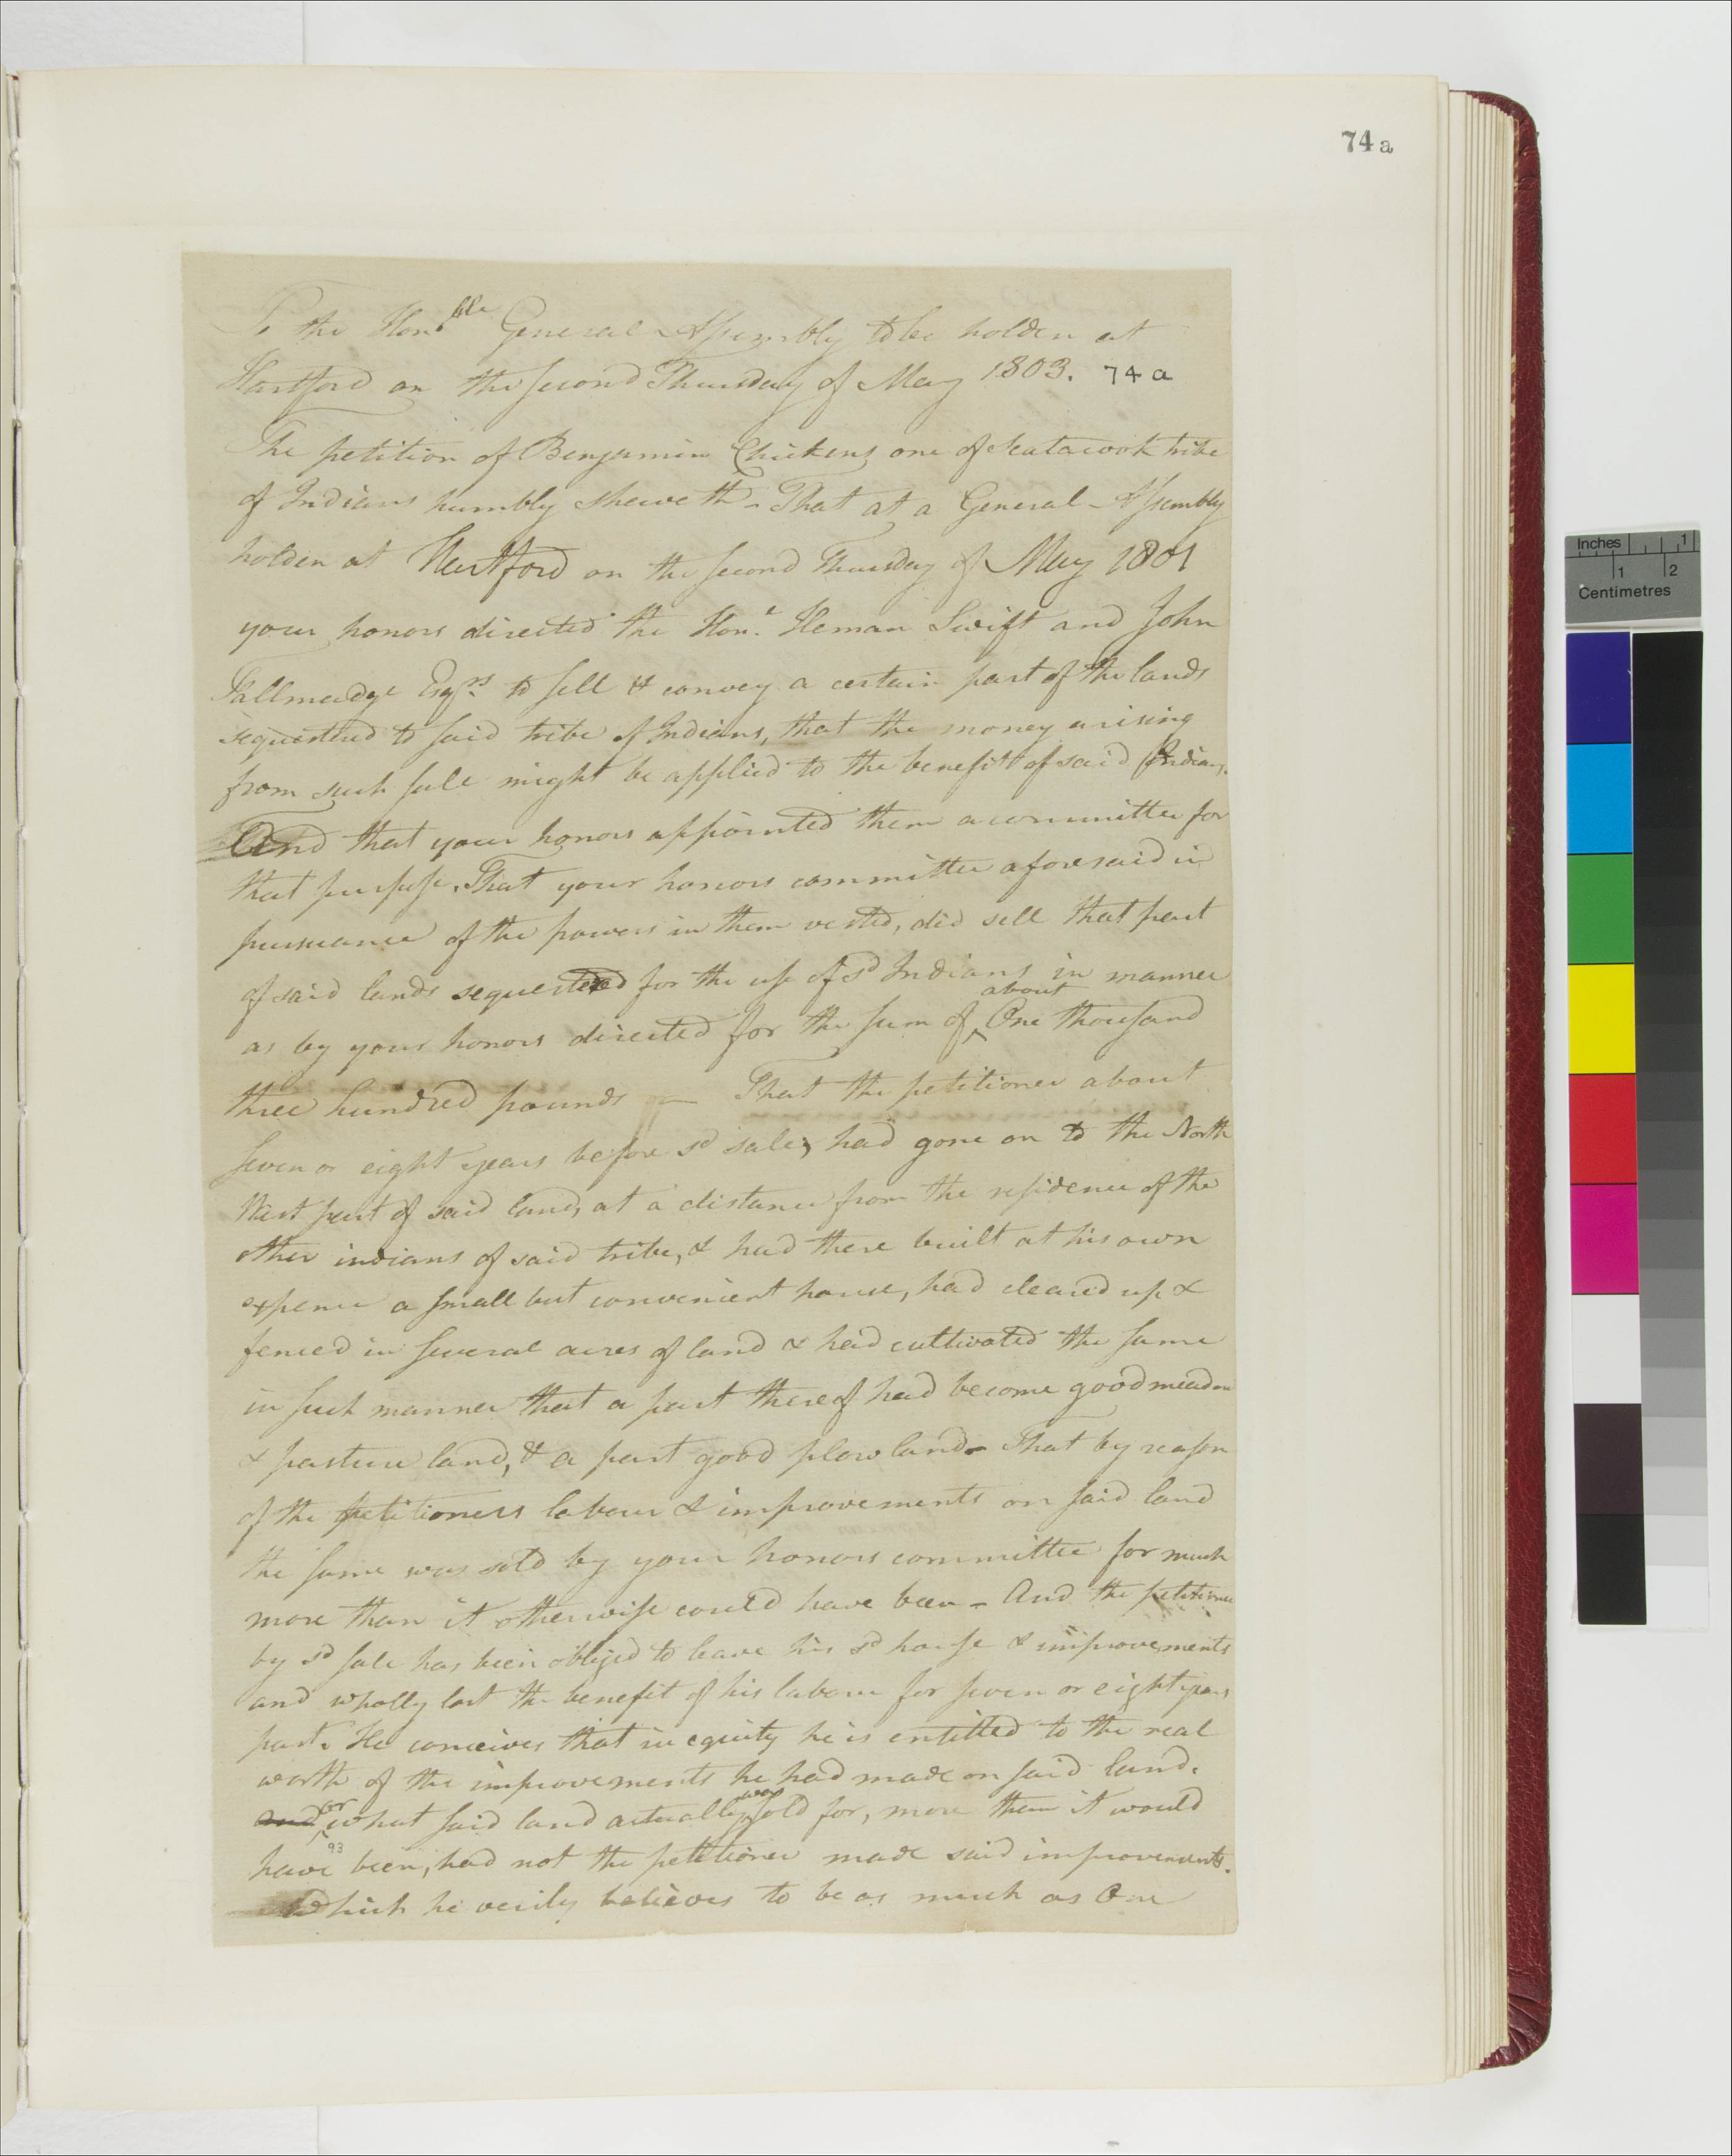 74a
To the Hon.ble General Assembly to be holden at
Hartford on the second Thursday of May 1803. 74a
The petition of Benjamin Chickens one of Scatacook tribe
of Indians humbly sheweth - That at a General Assembly
holden at Hartford on the second Thursday of May 1801
your honors directed the Hon.e Heman Swift and John
Tallmadge Esqrs. to sell & convey a certain part of the lands
sequestred to said tribe of Indians, that the money arising
from such sale might be applied to the benefitt of said Indians.
And that your honors appointed them a committee for
that purpose. That your honors committee aforesaid in
pursuance of the powers in them vested, did sell that part
of said lands sequestered for the use of sd Indians in manner
as by your honors directed for the sum of about One thousand
three hundred pounds — That the petitioner about
seven or eight years before sd sale, had gone on to the North
West part of said land, at a distance from the residence of the
other indians of said tribe, & had there built at his own
expence a small but convenient house, had cleared up &
fenced in several acres of land & had cultivated the same
in such manner that a part thereof had become good meadow
& pasture land, & a part good plow land - That by reason
of the petitioners labour & improvements on said land
the same was sold by your honors committee for much
more than it otherwise could have been - And the petitioner
by sd sale has been obliged to leave his sd house & improvements
and wholly lost the benefit of his labour for seven or eight years
past. He conceives that in equity he is entitled to the real
worth of the improvements he had made on said land.
and or what said land actually was sold for, more than it would
have been, had not the petitioner made said improvements.
93
Which he verily believes to be as much as One
Inches 1
1 2
Centimetres